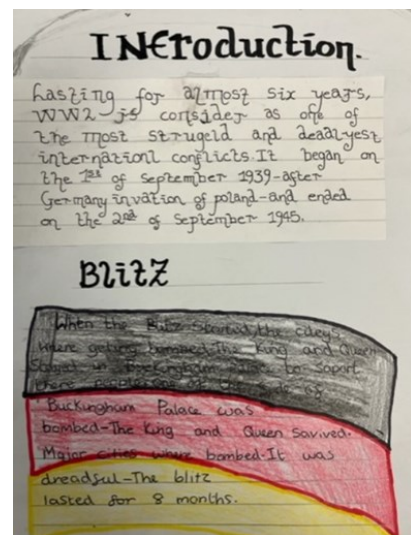 INtroduction.
Lasting for almost six years,
WW2 is consider as one of
the most strugeld and deadlyest
internationl conflicts.It began on
the 1st of september 1939-after
Germany invation of poland-and ended
on the 2nd of September 1945.
Blitz
When the Blitz started the citeys
where getting bombed.The King and Queen
Stayed in Buckingham to suport
there
Buckingham Palace was
bombed-The King and Queen savived.
Major cities where bombed.It was
dreadful-The blitz
lasted for 8 months.